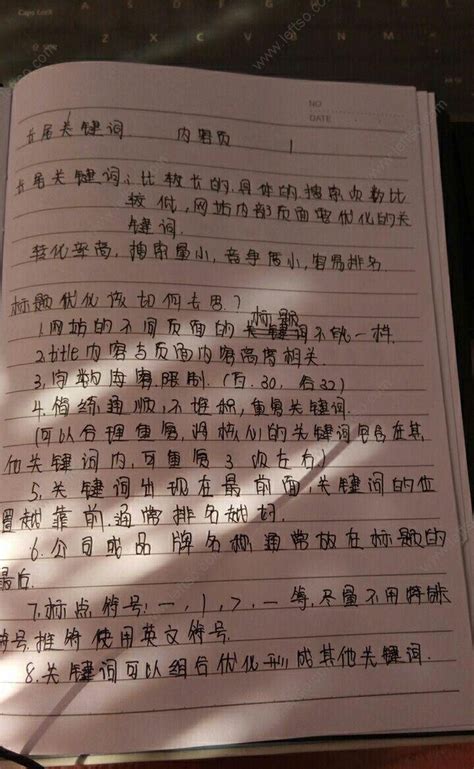 Caps Lock A S D F G H J K L
Z X C V B N M
NO
DATE
长尾关键词. 内容页 1
长尾关键词: 比较长的, 具体的, 搜索次数比
较低, 网站内部页面要优化的关
键词.
转化率高, 搜索量小, 竞争度小, 容易排名.
标题优化该如何去思?
标题
1.网站的不同页面的关键词不能一样.
2.title内容与页面内容高度相关.
3.字数长度限制. (百.30, 谷32)
4.精练通顺, 不堆积, 重复关键词.
(可以合理重复, 将核心的关键词包含在其
他关键词内, 可重复3次左右)
5.关键词出现在最前面, 关键词的位
置越靠前, 通常排名越好.
6.公司或品牌名称通常放在标题的
最后.
7.标点符号: 一, |, >, — 等, 尽量不用特殊
符号, 推荐使用英文符号.
8.关键词可以组合优化形成其他关键词.
www.leftso.com